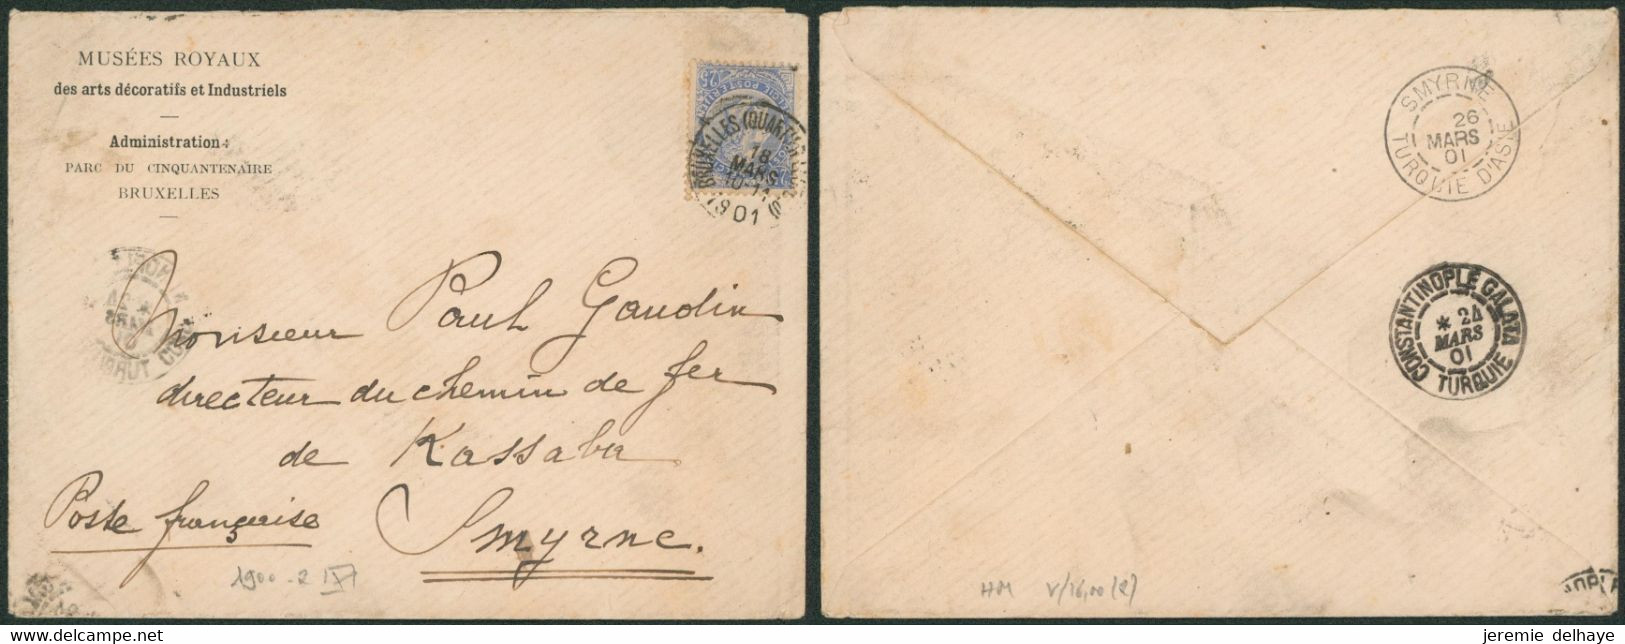 MUSÉES ROYAUX
des arts décoratifs et Industriels
Administration:
PARC DU CINQUANTENAIRE
BRUXELLES
25
BRUXELLES (QUARTIER
18
MARS
1901
Monsieur Paul Gaudin
directeur du chemin de fer
de Kassaba
Poste française
Smyrne.
1900-2
SMYRNE
26
MARS
01
TURQUIE D'ASIE
CONSTANTINOPLE GALATA
* 24
MARS
01
TURQUIE
V/16,00 (2)
jeremie delhaye